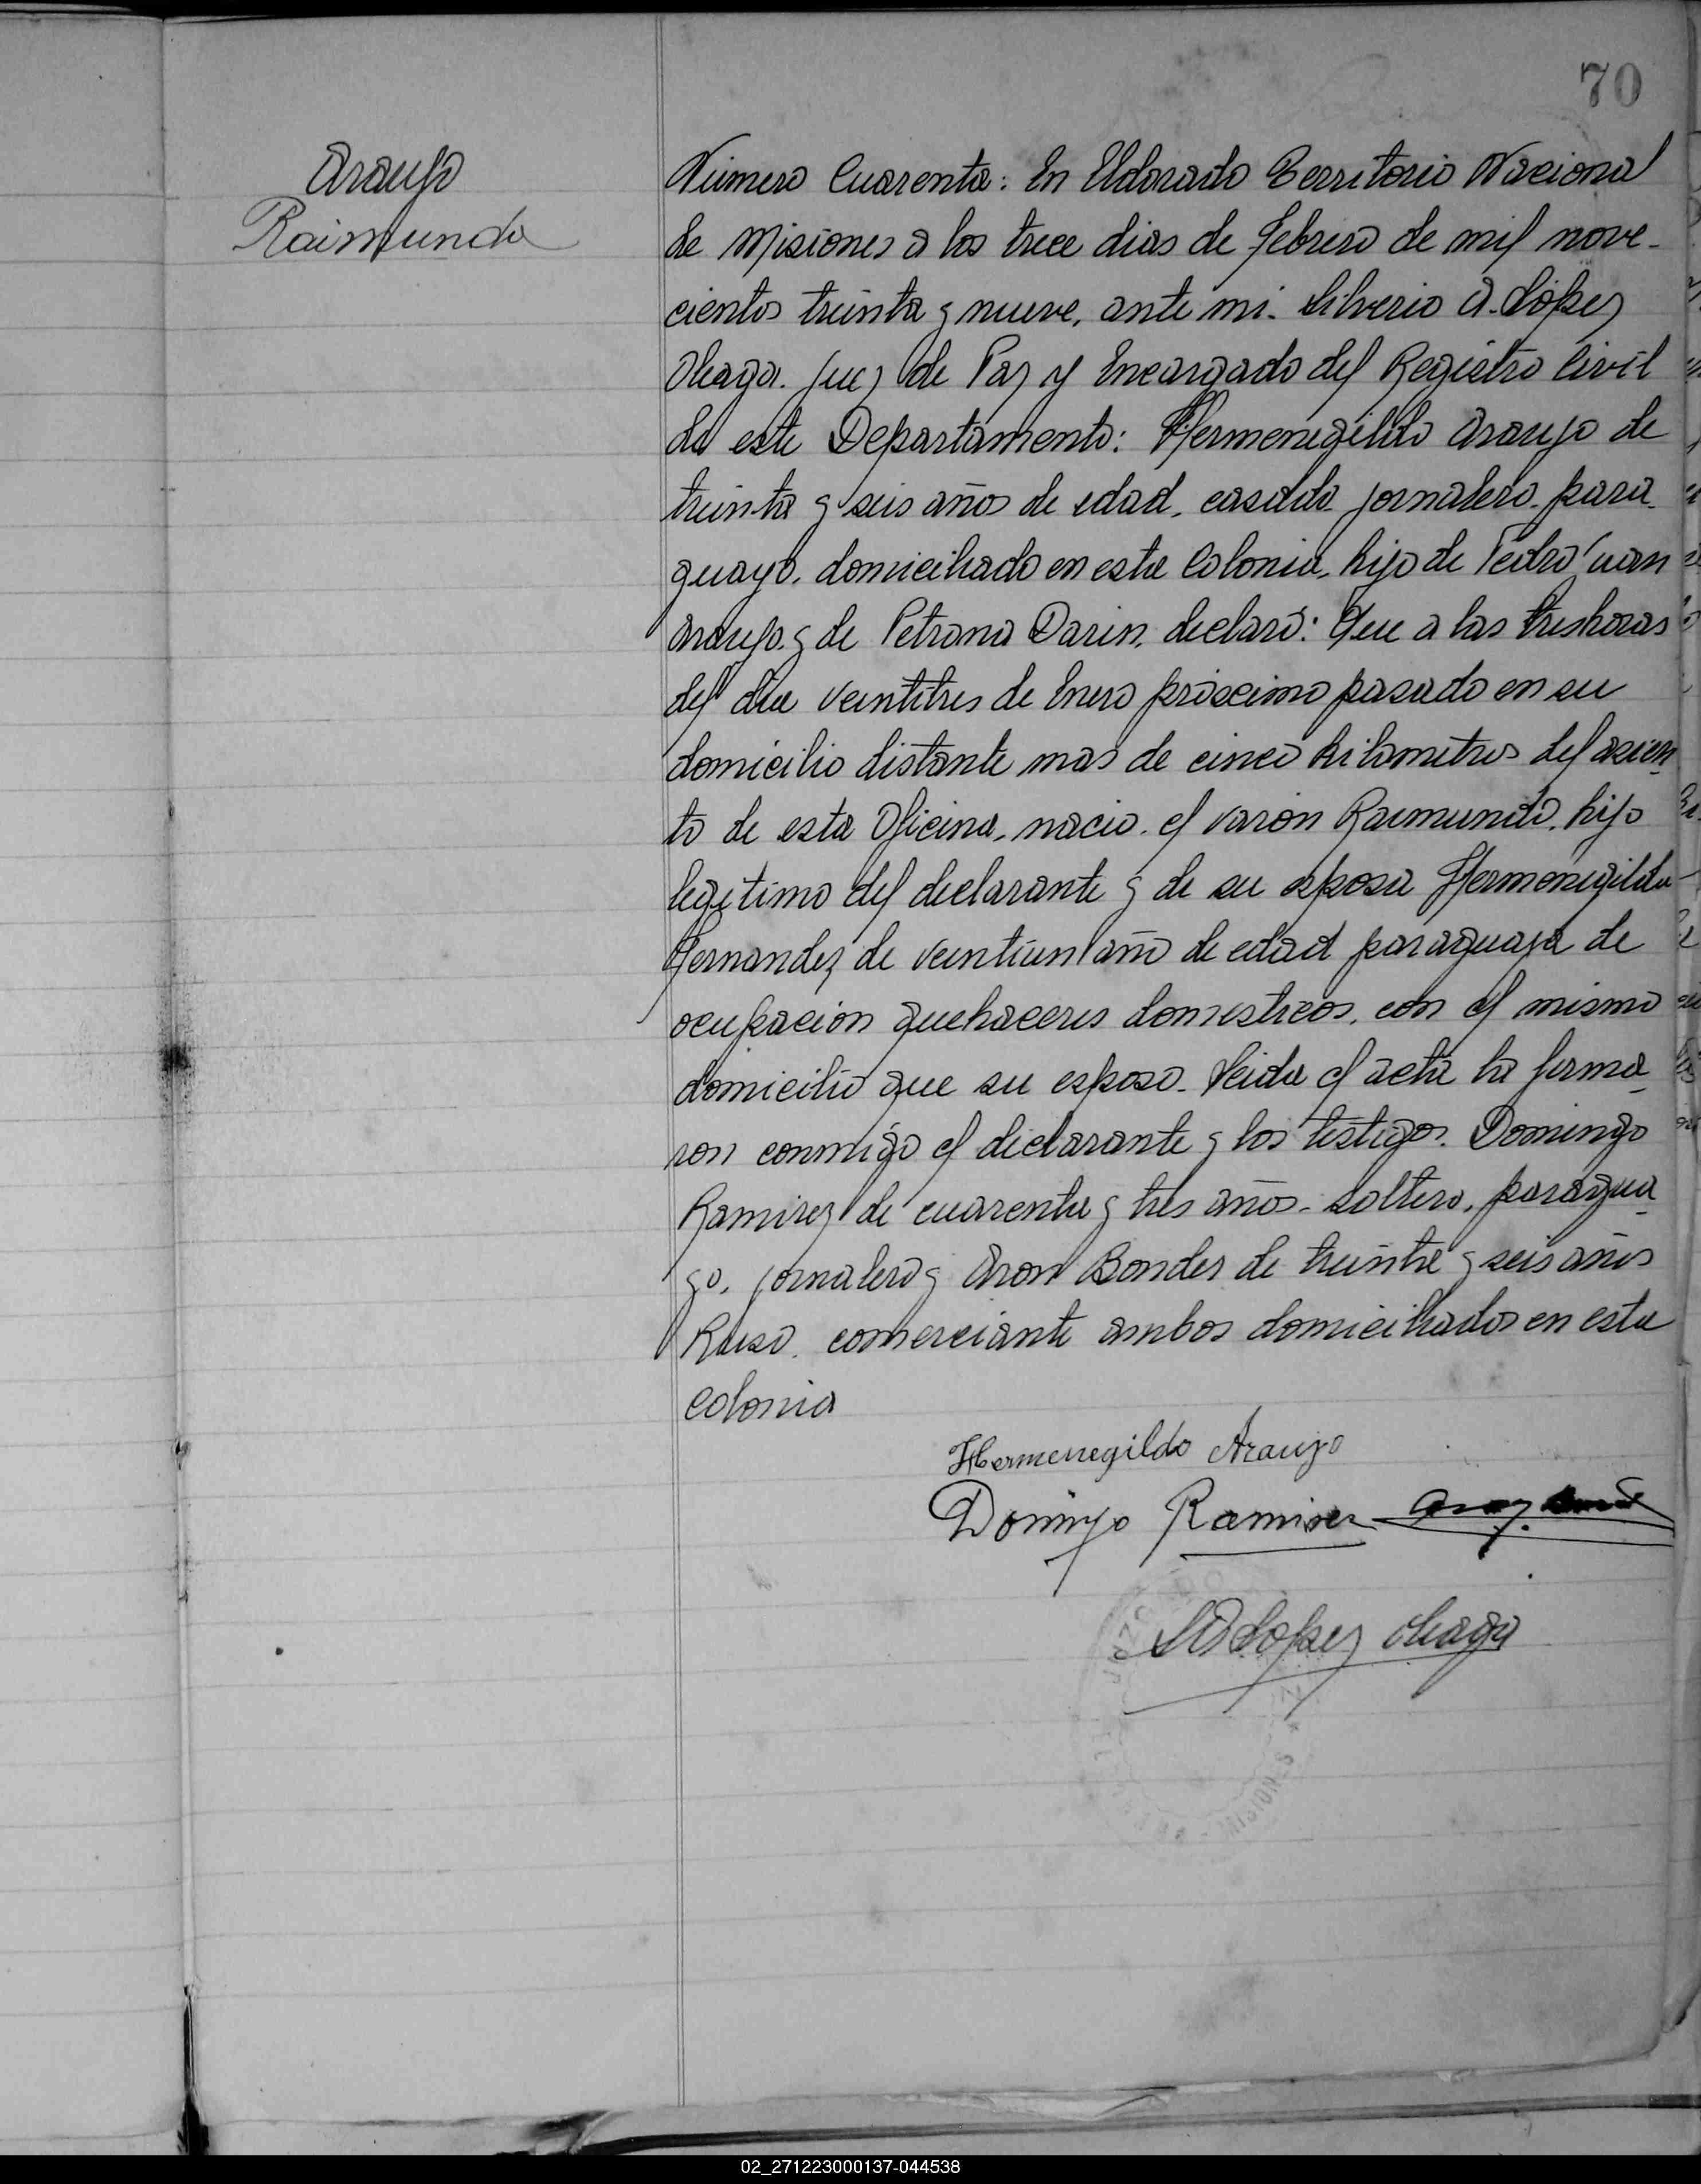 70
Araujo
Raimundo
Número Cuarenta: En Eldorado Territorio Nacional
de Misiones a los trece dias de febrero de mil nove-
cientos treinta y nueve, ante mi. Silverio A. López
Oleaga. Juez de Paz y Encargado del Registro Civil
de este Departamento: Hermenegildo Araujo de
treinta y seis años de edad, casado jornalero. para-
guayo, domiciliado en esta Colonia, hijo de Pedro Juan
Araujo. y de Petrona Darin, declaró: Que a las tres horas
del dia veintitres de Enero próximo pasado en su
domicilio distante mas de cinco kilometros del asien-
to de esta Oficina, nacio. el varón Raimundo. hijo
legitimo del declarante y de su esposa Hermenegilda
Fernandez de veintiun año de edad paraguaya de
ocupación quehaceres domesticos, con el mismo
domicilio que su esposo. Leida el acta la firma-
ron conmigo el declarante y los testigos. Domingo
Ramirez de cuarenta y tres años. soltero, paragua-
yo, jornalero y Aron Bonder de treinta y seis años
Ruso. comerciante ambos domiciliados en esta
Colonia
Hermenegildo Araujo
Domingo Ramirez
SA López Oleaga
02_271223000137-044538